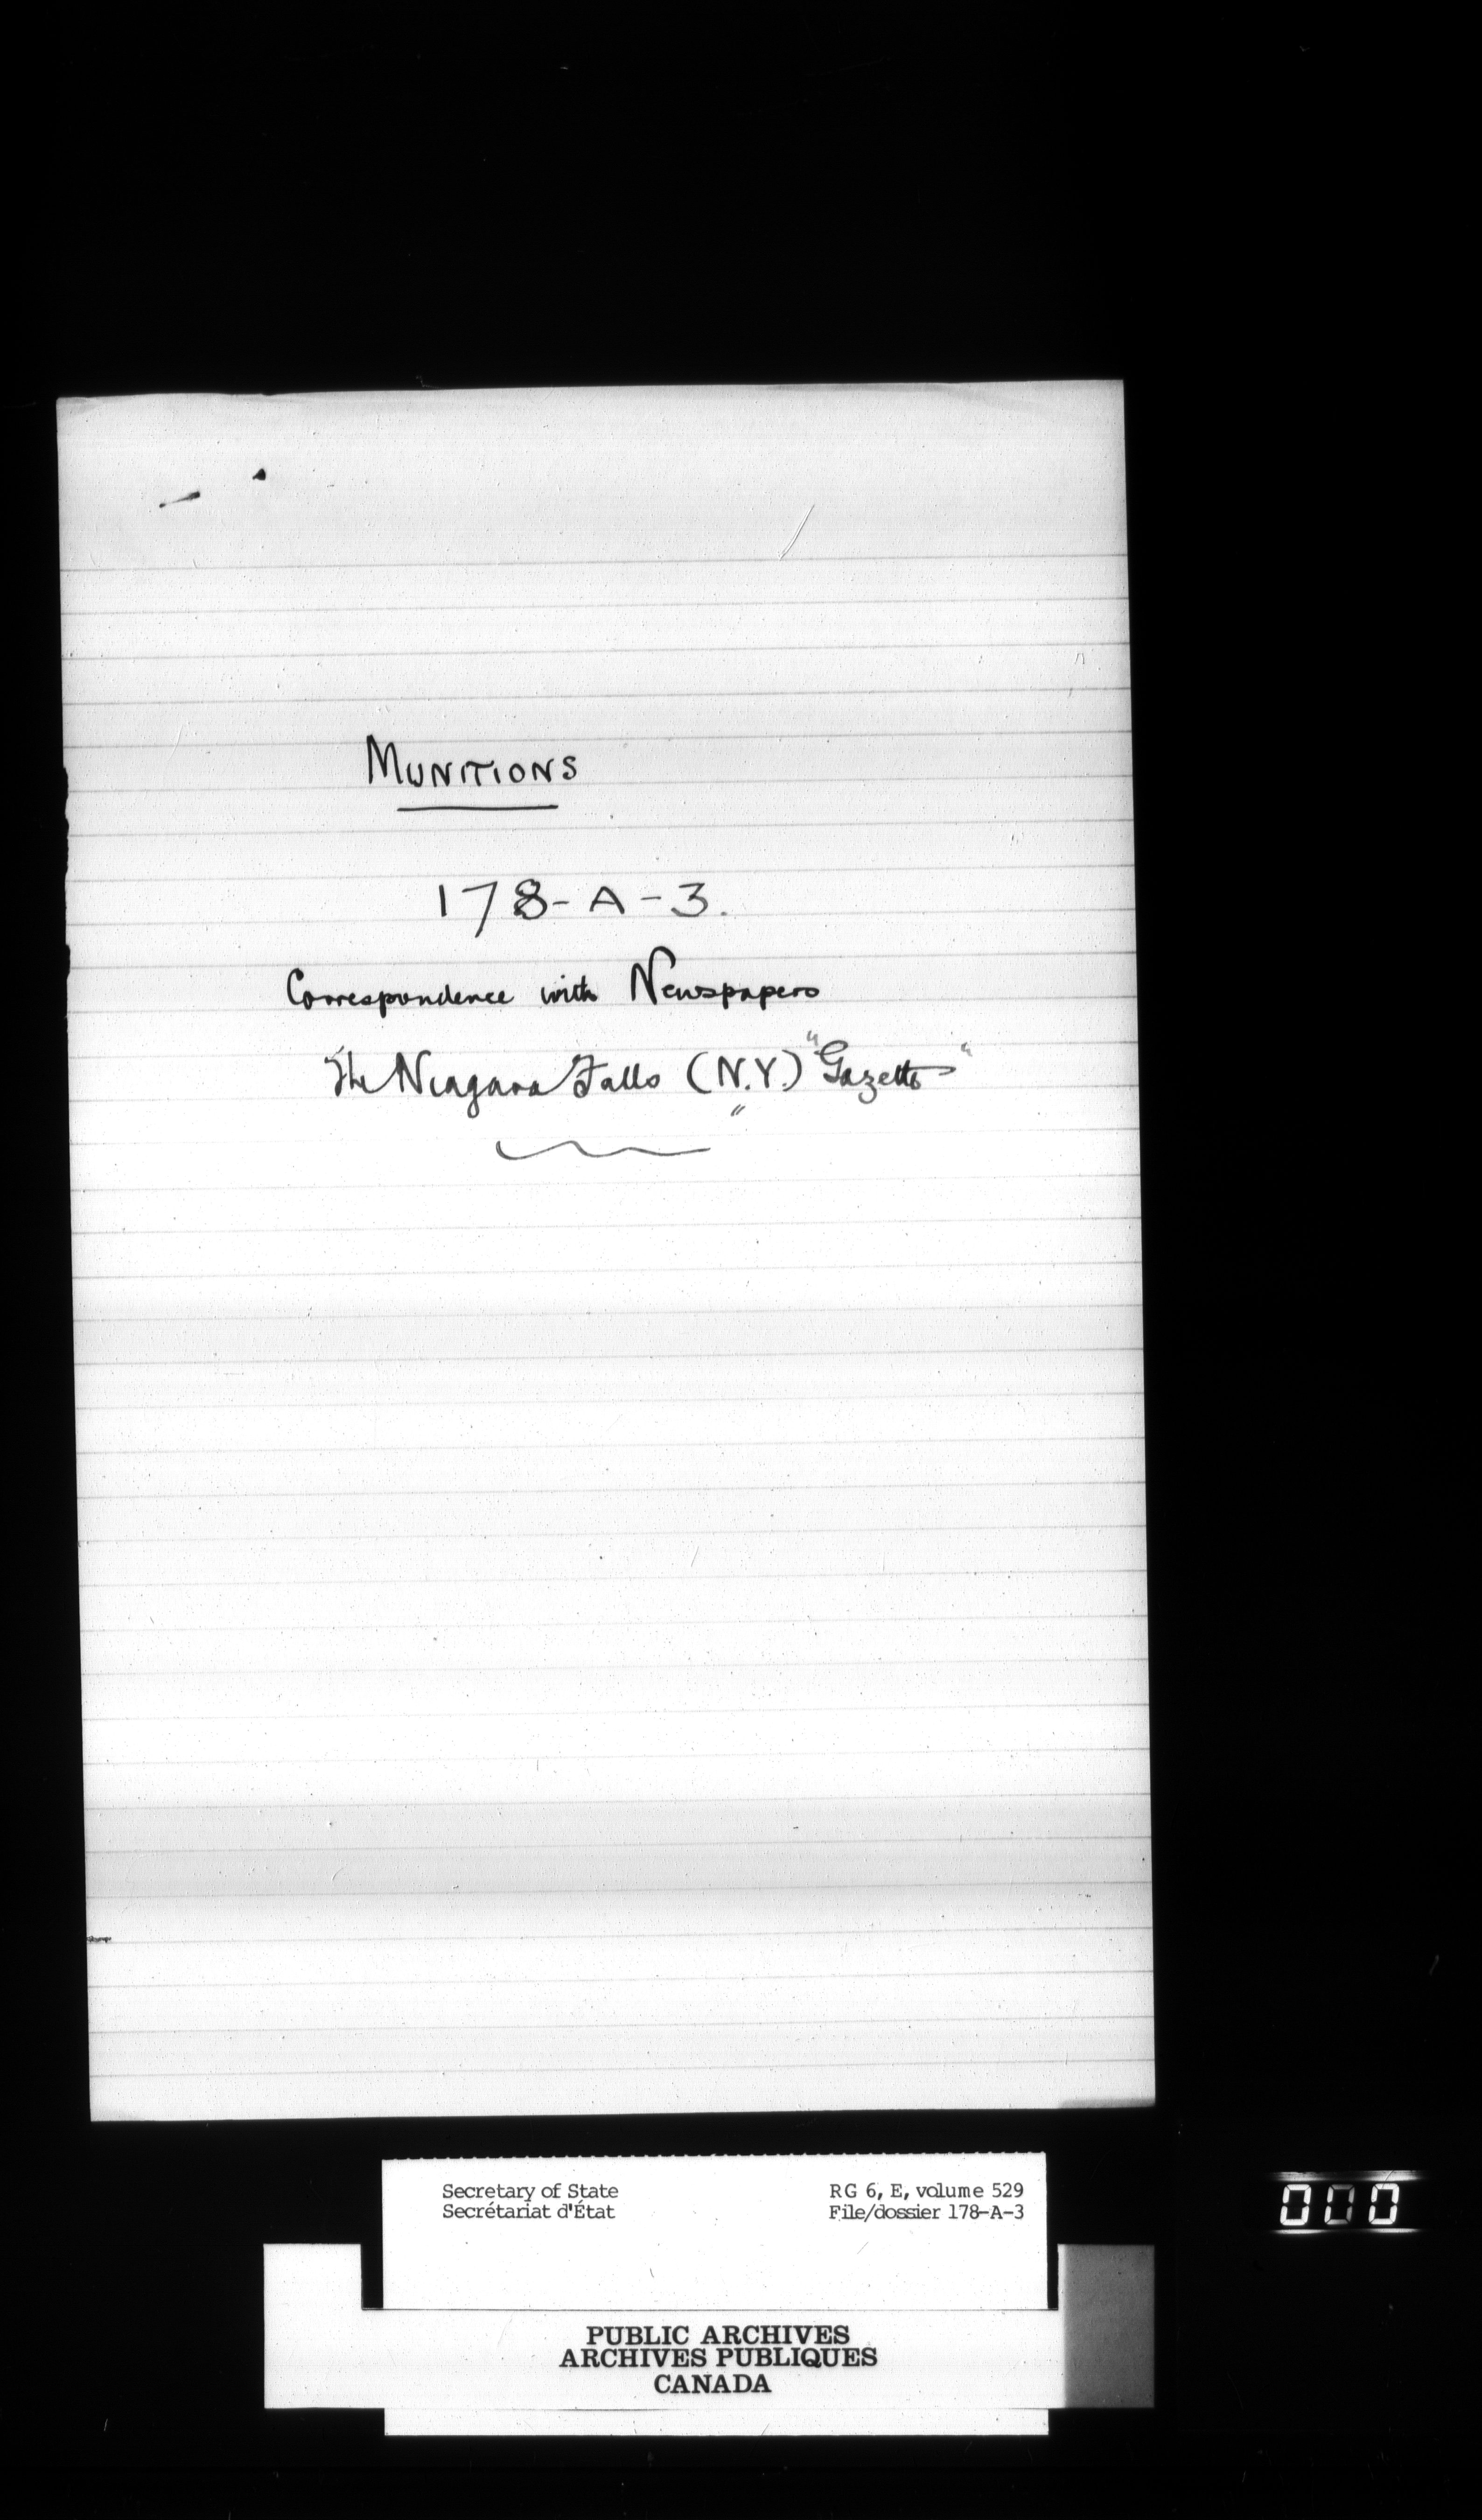 MUNITIONS
178-A-3.
Correspondence with Newspapers
The Niagara Falls (N.Y.) "Gazette"
Secretary of State
Secrétariat d'État
RG 6, E, volume 529
File/dossier 178-A-3
000
PUBLIC ARCHIVES
ARCHIVES PUBLIQUES
CANADA